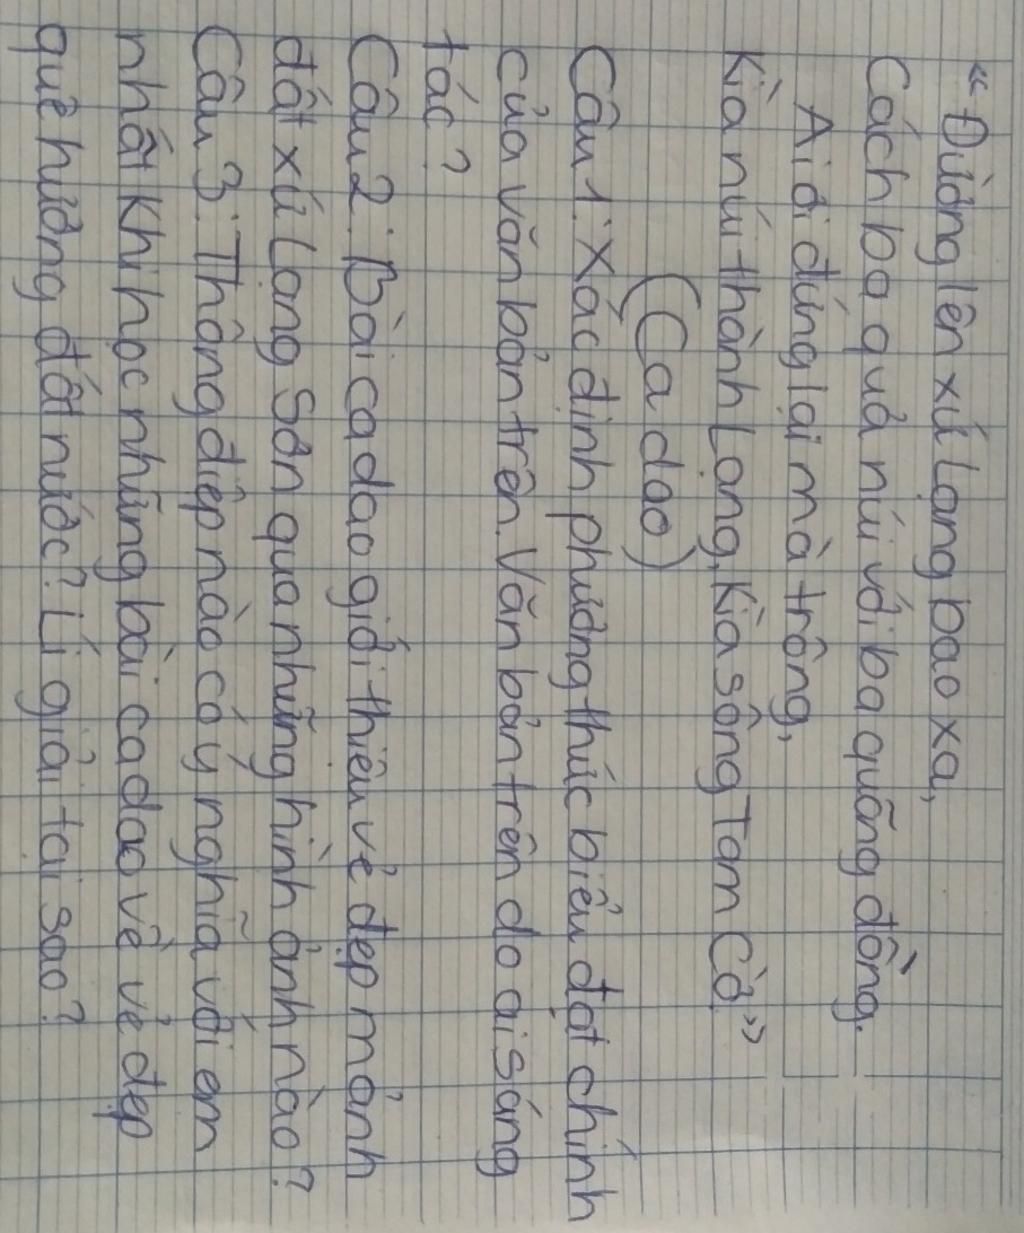 “Đường lên xứ Lạng bao xa,
Cách ba quả núi với ba quãng đồng.
Ai ơi đứng lại mà trông,
Kìa núi thành Lạng, kìa sông Tam Cờ.”
(Ca dao)
Câu 1: Xác định phương thức biểu đạt chính
của văn bản trên. Văn bản trên do ai sáng
tác?
Câu 2: Bài ca dao giới thiệu vẻ đẹp mảnh
đất xứ Lạng Sơn qua những hình ảnh nào?
Câu 3: Thông điệp nào có ý nghĩa với em
nhất khi học những bài ca dao về vẻ đẹp
quê hương đất nước? Lí giải tại sao?